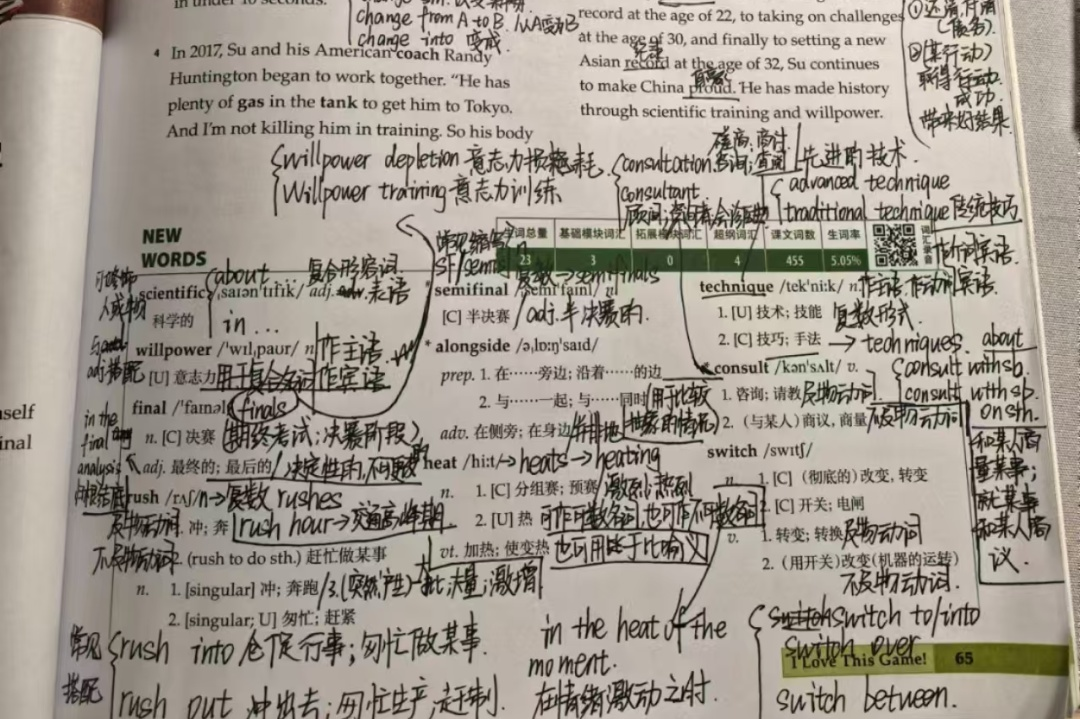 in under 10 seconds.
change from A to B 从A变为B
change into 变成
4 In 2017, Su and his American coach Randy
Huntington began to work together. "He has
plenty of gas in the tank to get him to Tokyo.
And I'm not killing him in training. So his body
record at the age of 22, to taking on challenges
at the age of 30, and finally to setting a new
Asian record at the age of 32, Su continues
to make China proud. He has made history
through scientific training and willpower.
②(某行动)
获得行动
成功.
带来好结果.
willpower depletion 意志力损耗.
Willpower training 意志力训练
consultation 咨询;查阅
consultant.
先进的技术.
advanced technique
traditional technique 传统技巧
NEW
WORDS
生词总量 基础模块词汇 拓展模块词汇 超纲词汇 课文词数 生词率
23 3 0 4 455 5.05%
词汇录音
about... 复合形容词.
scientific /ˌsaɪən'tɪfɪk/ adj. 表语
科学的
in ...
willpower /'wɪlˌpaʊr/ n. 作主语.
[U] 意志力 用于复合名词 作宾语
final /'faɪnəl/ finals
n. [C] 决赛 (期终考试;决赛阶段)
adj. 最终的; 最后的 / 决定性的,不可改变
in the
final
analysis
归根结底
rush /rʌʃ/ n→复数 rushes
及物动词. 冲; 奔 rush hour→交通高峰期
不及物动词. (rush to do sth.) 赶忙做某事
n. 1. [singular] 冲; 奔跑 /3.(突然产生)大批,大量;激增
2. [singular; U] 匆忙; 赶紧
常见
搭配
rush into 仓促行事;匆忙做某事.
rush out 冲出去;匆忙生产,赶制.
SF/semi 复数→semifinals
* semifinal /ˌsemi'faɪnl/ n.
[C] 半决赛 /adj.半决赛的.
* alongside /əˌlɒːŋ'saɪd/
prep. 1. 在……旁边; 沿着……的边
2. 与……一起; 与……同时 (用于比较
抽象的情况)
adv. 在侧旁; 在身边 /并排地
heat /hiːt/→heats→heating
n. 1. [C] 分组赛; 预赛 /激烈;热烈
2. [U] 热 可作可数名词,也可作不可数名词
vt. 加热; 使变热 也可用于比喻义
in the heat of the
moment.
在情绪激动之时.
technique /tek'niːk/ n. 作主语.作动词宾语.
作介词宾语.
1. [U] 技术; 技能 复数形式.
2. [C] 技巧; 手法 → techniques. about
consult /kən'sʌlt/ v. consult with sb.
1. 咨询; 请教 及物动词. consult with sb
on sth.
2. (与某人) 商议, 商量 不及物动词
和某人商
量某事;
就某事
和某人商
议.
switch /swɪtʃ/
n. 1. [C] (彻底的) 改变, 转变
2. [C] 开关; 电闸
v. 1. 转变; 转换 及物动词
2. (用开关)改变(机器的运转)
不及物动词.
switch to/into
switch over
switch between.
I Love This Game! 65
self
inal